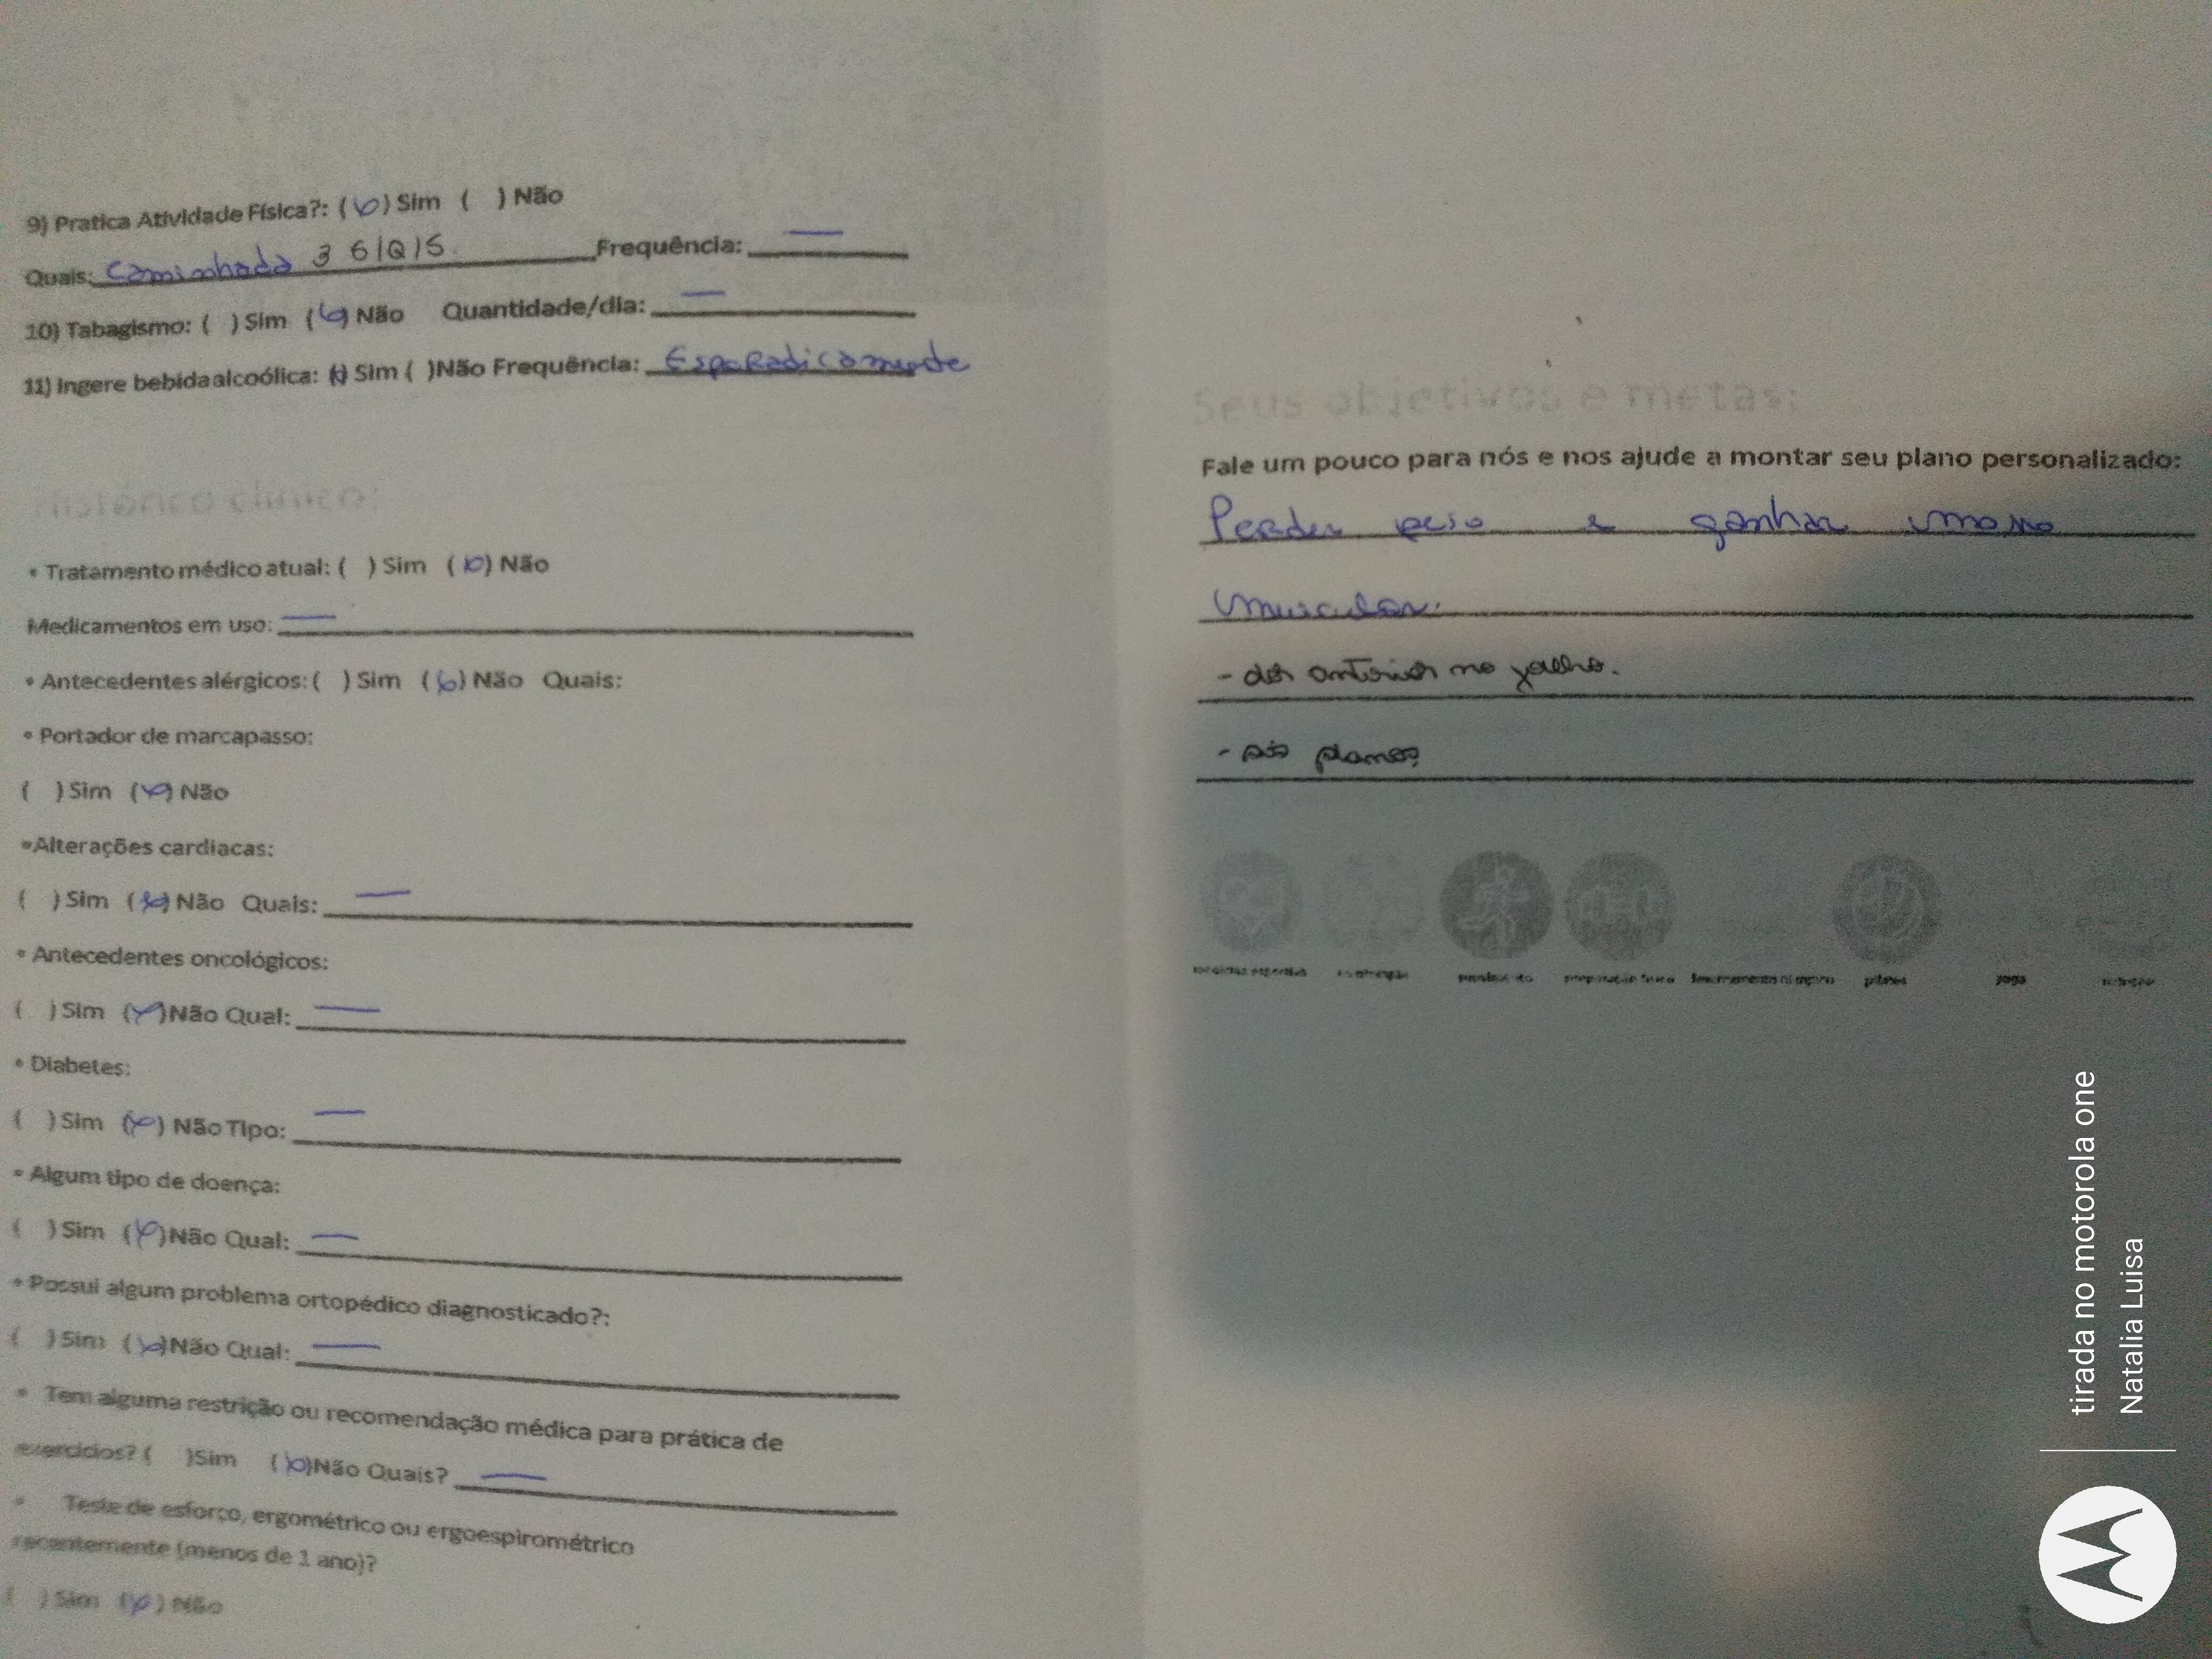 9) Pratica Atividade Física?: (x) Sim ( ) Não
Quais: Caminhada 3 6/Q/S. Frequência: —
10) Tabagismo: ( ) Sim (x) Não Quantidade/dia: —
11) Ingere bebida alcoólica: (x) Sim ( )Não Frequência: Esporadicamente
Histórico clínico:
• Tratamento médico atual: ( ) Sim (x) Não
Medicamentos em uso: —
• Antecedentes alérgicos: ( ) Sim (x) Não Quais:
• Portador de marcapasso:
( ) Sim (x) Não
•Alterações cardiacas:
( ) Sim (x) Não Quais: —
• Antecedentes oncológicos:
( ) Sim (x)Não Qual: —
• Diabetes:
( ) Sim (x) Não Tipo: —
• Algum tipo de doença:
( ) Sim (x)Não Qual: —
• Possui algum problema ortopédico diagnosticado?:
( ) Sim (x)Não Qual: —
• Tem alguma restrição ou recomendação médica para prática de
exercicios? ( )Sim (x)Não Quais? —
• Teste de esforço, ergométrico ou ergoespirométrico
recentemente (menos de 1 ano)?
( ) Sim (x) Não
Seus objetivos e metas:
Fale um pouco para nós e nos ajude a montar seu plano personalizado:
Perder peso e ganhar massa
muscular.
- dor anterior no joelho.
- pés planos
preparação física pilates yoga
tirada no motorola one
Natalia Luisa